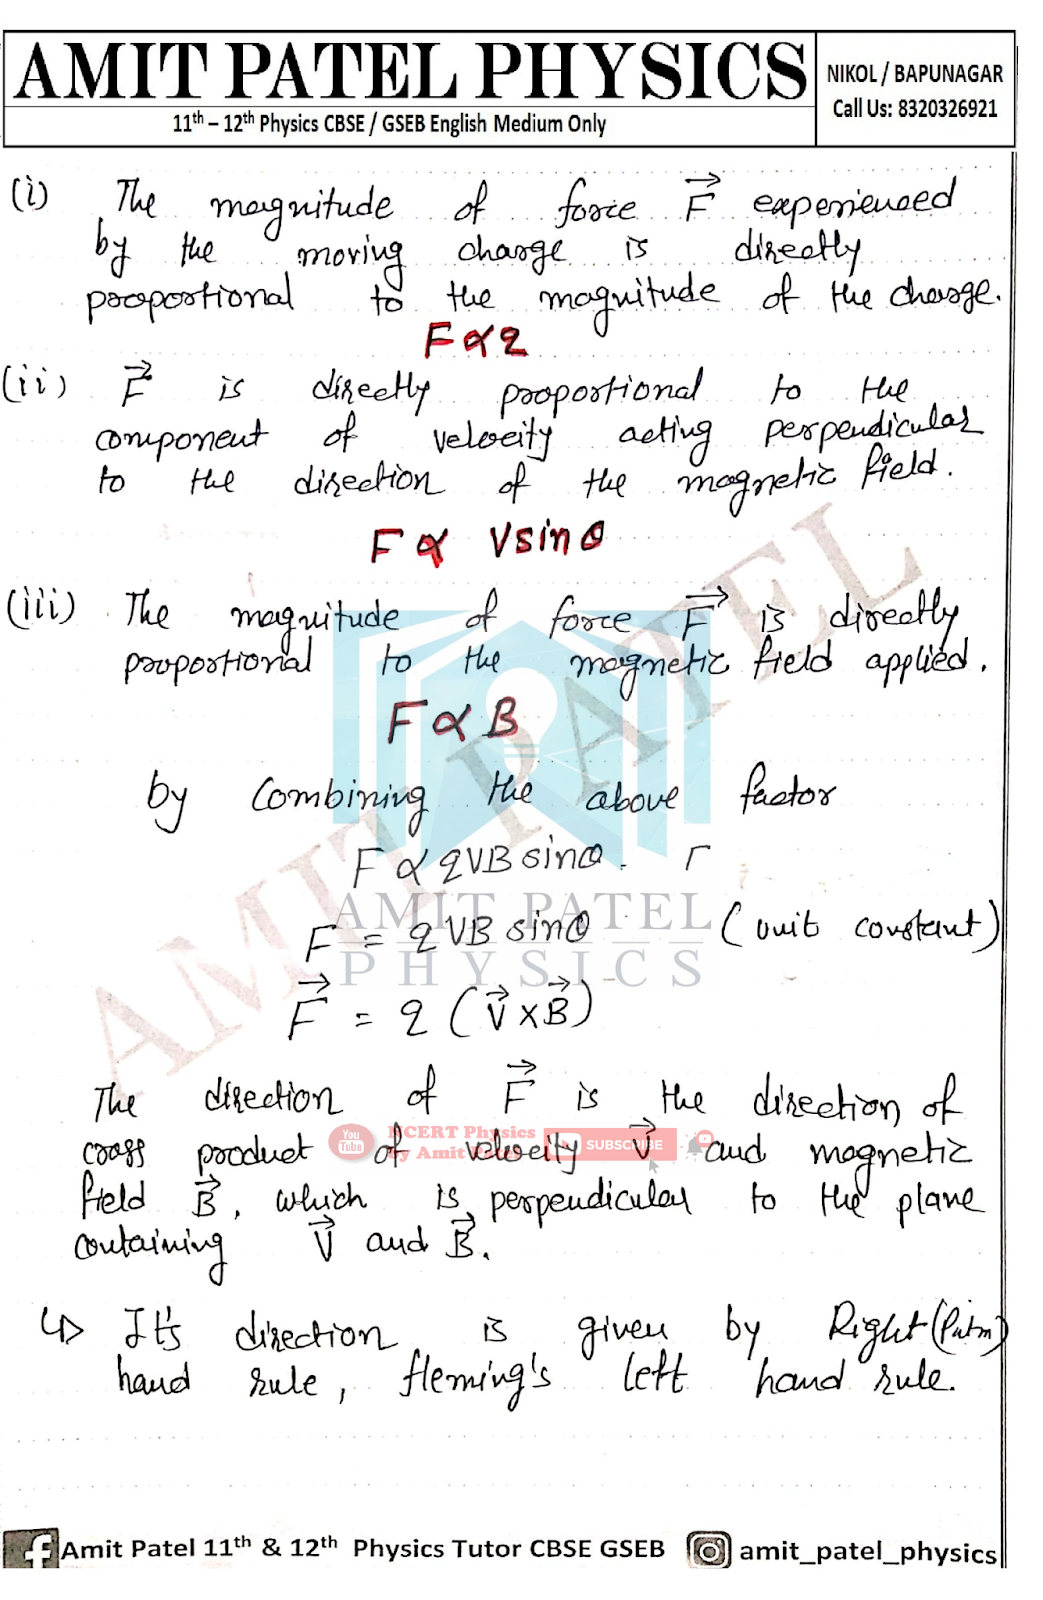 AMIT PATEL PHYSICS
11th – 12th Physics CBSE / GSEB English Medium Only
NIKOL / BAPUNAGAR
Call Us: 8320326921
(i) The magnitude of force F⃗ experienced
by the moving charge is directly
proportional to the magnitude of the charge.
F ∝ q
(ii) F⃗ is directly proportional to the
component of velocity acting perpendicular
to the direction of the magnetic field.
F ∝ V sin θ
(iii) The magnitude of force F⃗ is directly
proportional to the magnetic field applied.
F ∝ B
by combining the above factor
F ∝ qVB sinθ.
F = qVB sinθ (unit constant)
F⃗ = q (V⃗ × B⃗)
The direction of F⃗ is the direction of
cross product of velocity V⃗ and magnetic
field B⃗, which is perpendicular to the plane
containing V⃗ and B⃗.
↳ It's direction is given by Right (Palm)
hand rule, fleming's left hand rule.
AMIT PATEL
AMIT PATEL
PHYSICS
You Tube
NCERT Physics
by Amit Patel
SUBSCRIBE
Amit Patel 11th & 12th Physics Tutor CBSE GSEB
amit_patel_physics